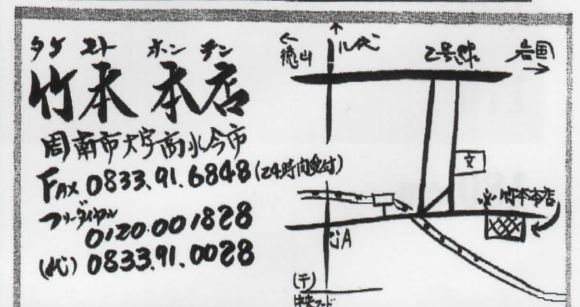 タケ モト ホン テン
竹本 本店
周南市大字高水今市
FAX 0833.91.6848(24時間受付)
フリーダイヤル
0120.001828
(代) 0833.91.0028
←徳山
八代
2号線
岩国→
文
※竹本本店
JA
(〒)